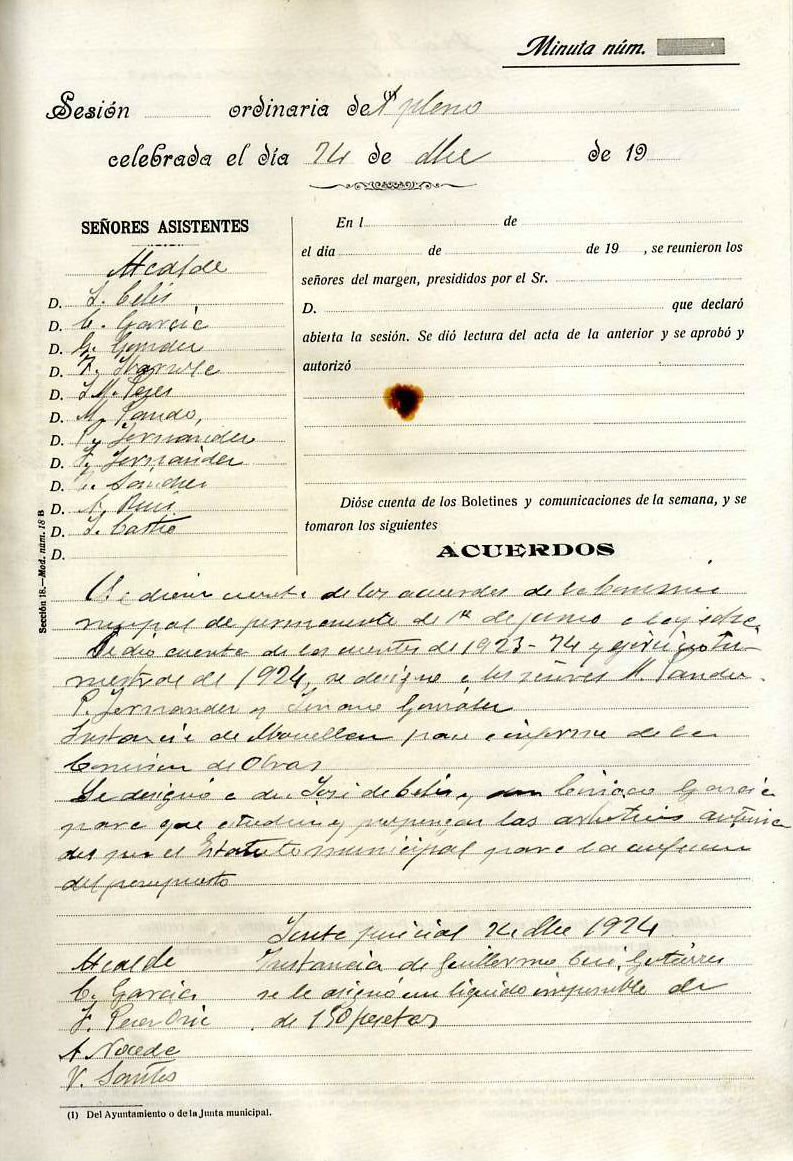 Minuta núm.
Sesión ordinaria del pleno
celebrada el día 24 de dbre de 19
SEÑORES ASISTENTES
Alcalde
D. J. Celis
D. C. García
D. G.
D. F.
D. J. M. Perez
D. M. Pando,
D. P. Fernandez
D. F. Fernandez
D. Sanchez
D. A. Ruiz
D. J. Castro
D.
En l de
el día de de 19 , se reunieron los
señores del margen, presididos por el Sr.
D. que declaró
abierta la sesión. Se dió lectura del acta de la anterior y se aprobó y
autorizó
Dióse cuenta de los Boletines y comunicaciones de la semana, y se
tomaron los siguientes
ACUERDOS
cuenta de los acuerdos de la
de permanente de 1º de junio a
Se dio cuenta de las cuentas de 1923-24 y ejercicio tri-
mestral de 1924, se designa a los señores M. Pando.
P. Fernandez y Gonzalez
Instancia de para informe de la
Comision de Obras
Se designó a dn. José de Celis y Ciriaco Garcia
para que estudien y propongan los arbitrios
por el Estatuto municipal para la
del presupuesto
Junta pericial 24 dbre 1924
Alcalde
Instancia de Guillermo Gutierrez
C. Garcia
se le asignó un liquido imponible de
J. Perez
de 150 pesetas
A. Nocedo
V. Santos
Sección 18.—Mod. núm. 18 B
(1) Del Ayuntamiento o de la Junta municipal.